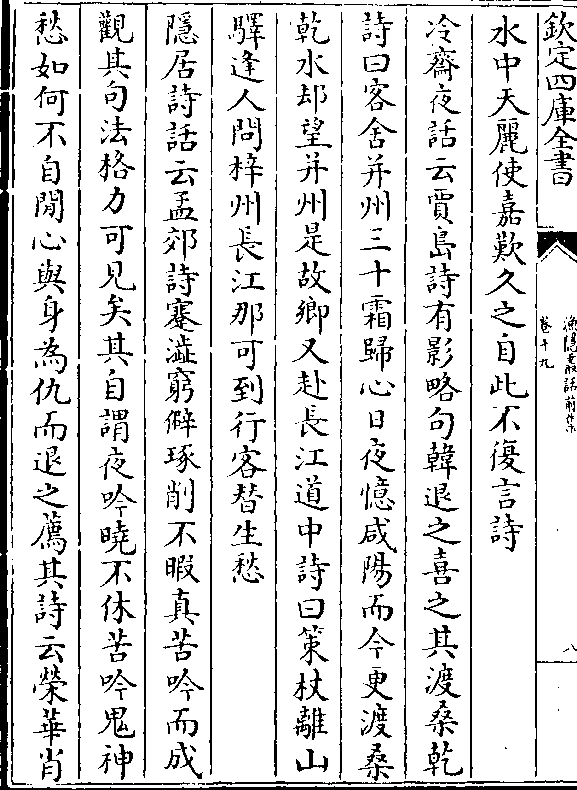 欽定四庫全書
漁隱叢話前集
卷十九
八
水中天麗使嘉歎久之自此不復言詩
冷齋夜話云賈島詩有影略句韓退之喜之其渡桑乾
詩曰客舍并州三十霜歸心日夜憶咸陽而今更渡桑
乾水却望并州是故鄉又赴長江道中詩曰策杖離山
驛逢人問梓州長江那可到行客替生愁
隱居詩話云孟郊詩蹇澁窮僻琢削不暇真苦吟而成
觀其句法格力可見矣其自謂夜吟曉不休苦吟鬼神
愁如何不自閒心與身為仇而退之薦其詩云榮華肖